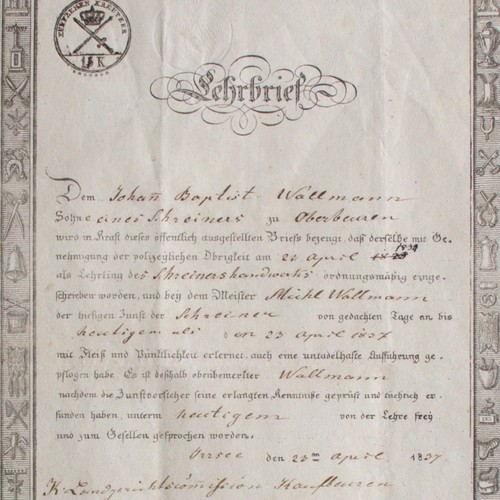 FÜNFZEHEN KREUTZER
15 K
Lehrbrief
Dem Johan̄ Baptist Wallmann
Sohne eines Schreiners zu Oberbeuren
wird in Kraft dieses öffentlich ausgestellten Briefs bezeugt, daß derselbe mit Ge-
nehmigung der polizeylichen Obrigkeit am 23 April
als Lehrling des Schreinershandwerks ordnungsmäßig einge-
schrieben worden, und bey dem Meister Michl Wallmann
der hiesigen Zunft der Schreiner von gedachten Tage an bis
heutigem als den 23 April 1837
mit Fleiß und Pünktlichkeit erlernet, auch eine untadelhafte Aufführung ge-
pflogen habe. Es ist deßhalb obenbemerkter Wallmann
nachdem die Zunftvorsteher seine erlangten Kenntniße geprüft und tüchtig er-
funden haben, unterm heutigem von der Lehre frey
und zum Gesellen gesprochen worden.
Irrsee den 23ten April 1837
K. Landgerichtscomission Kaufbeuren